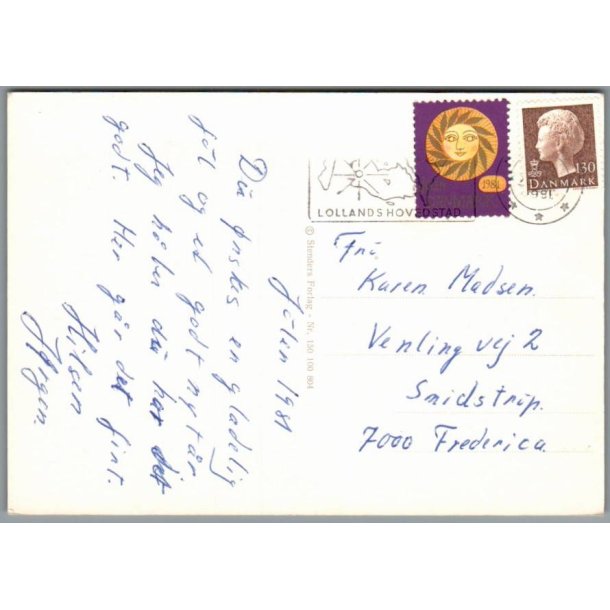 Jülin 1981
Dü ønskes en glædelig
jül og et godt nytår
Jeg håber dü har det
godt. Her går det fint.
Hilsen
Jørgen.
© Stenders Forlag - Nr. 150 100 804
LOLLANDS HOVEDSTAD
1981
130
DANMARK
Frü
Karen Madsen.
Venling vej 2
Smidstrip.
7000 Frederica.